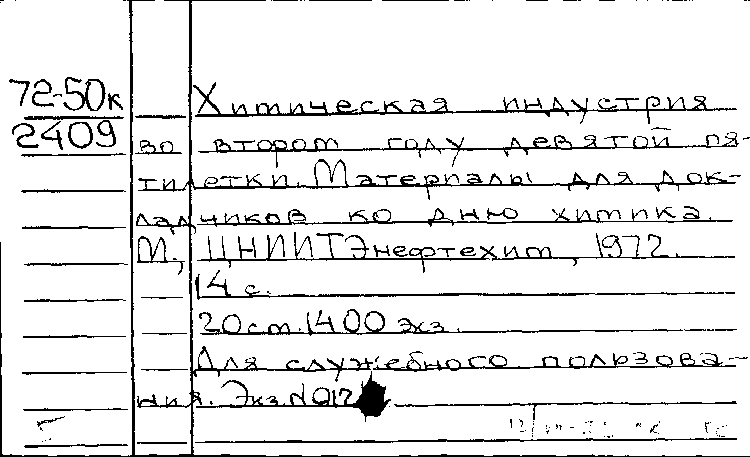 72-50к
2409
Химическая индустрия
во втором году девятой пя-
тилетки. Материалы для док-
ладчиков ко дню химика.
М., ЦНИИТЭнефтехим, 1972.
14 с.
20 см. 1400 экз.
Для служебного пользова-
ния. Экз. N 012